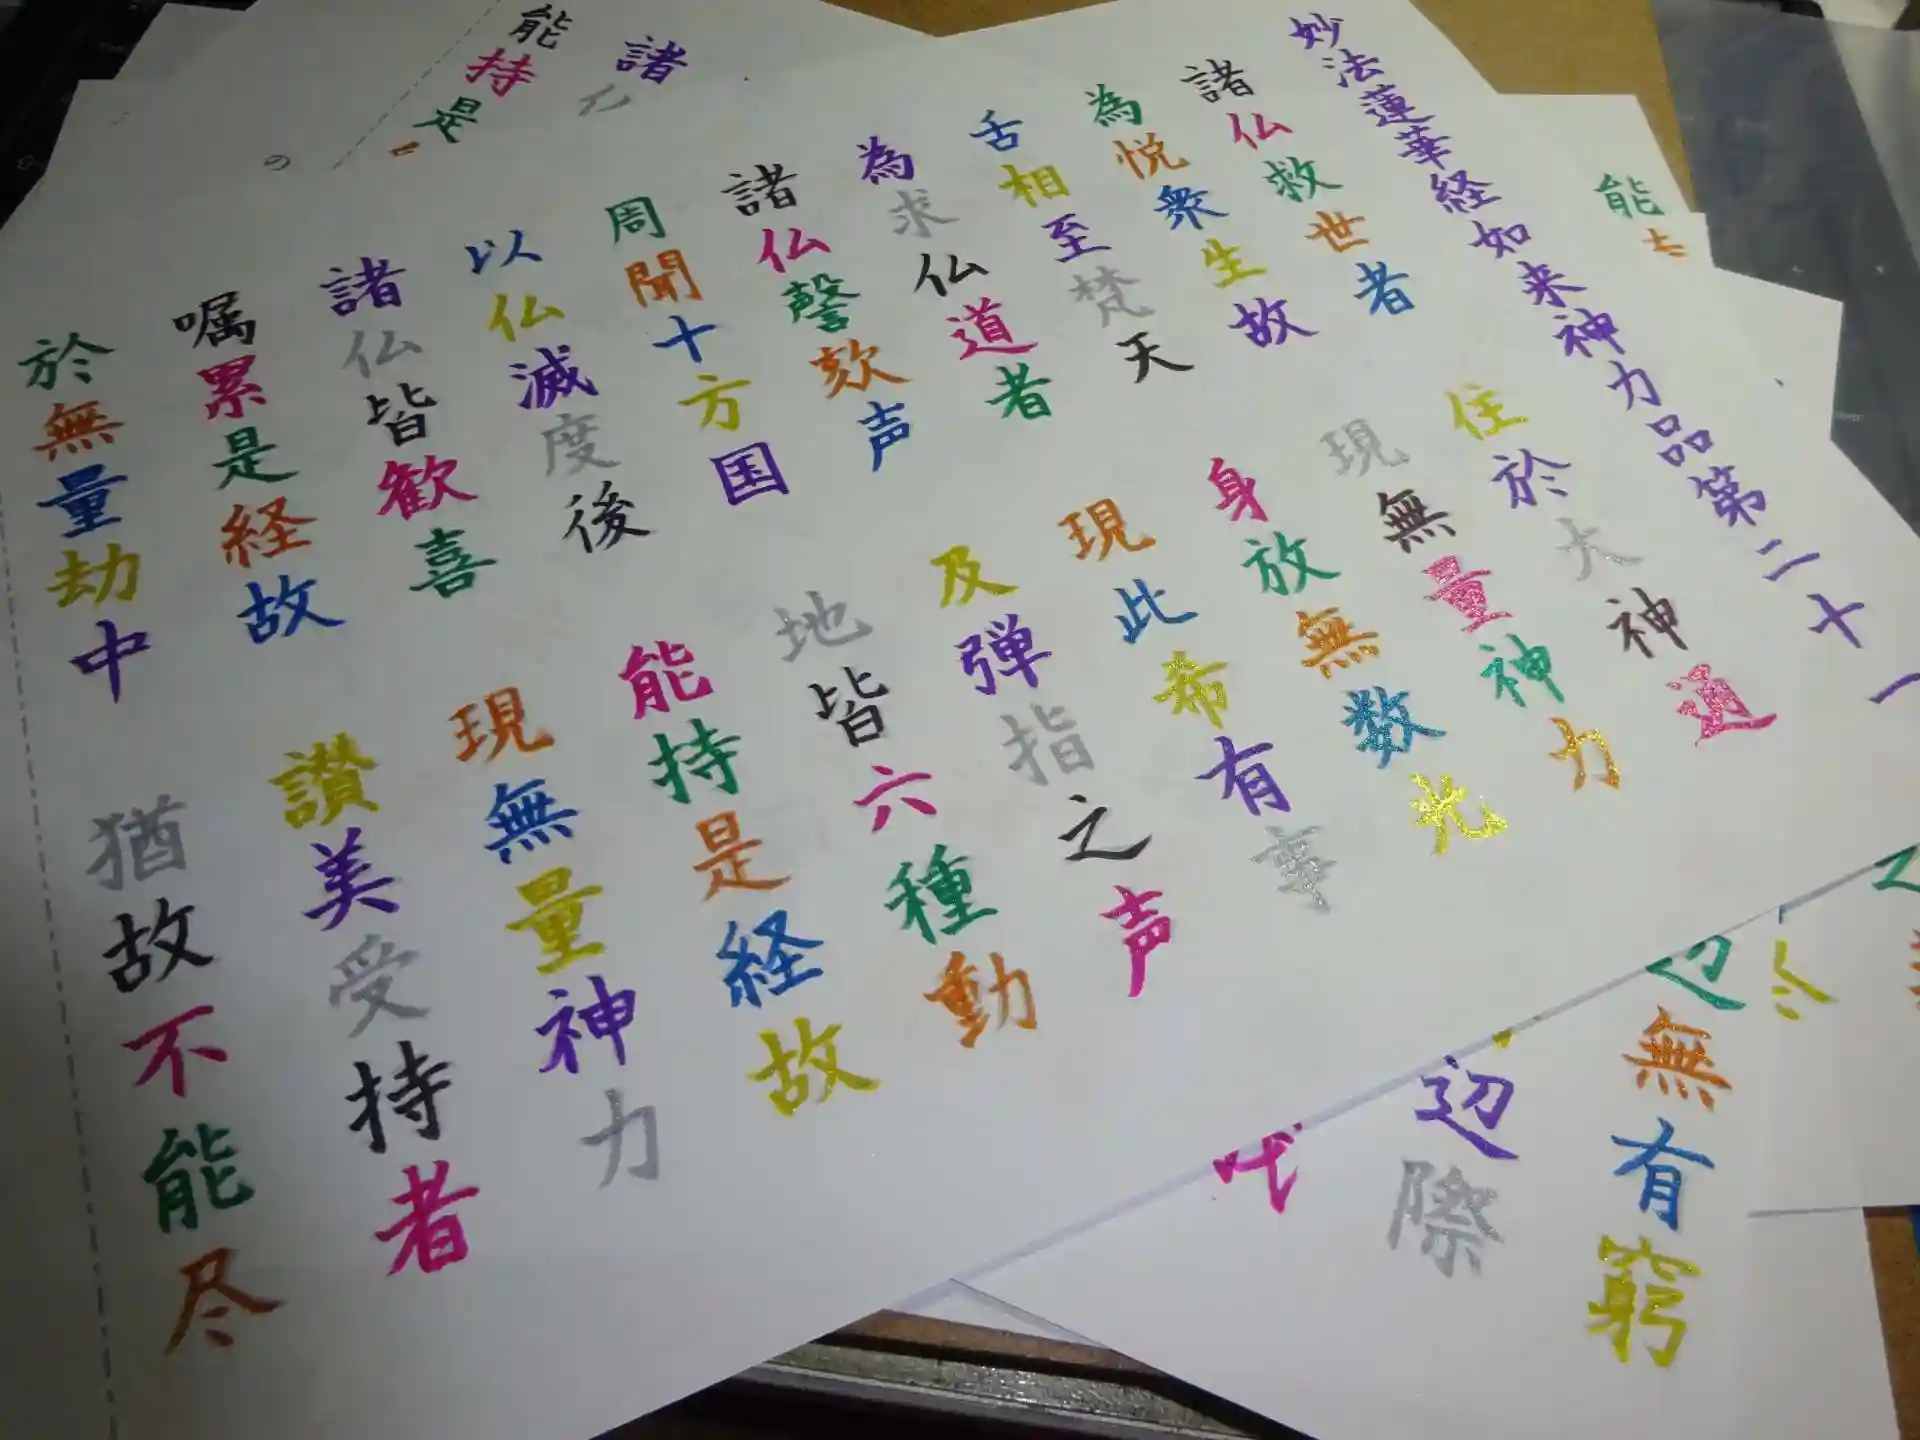 妙法蓮華経如来神力品第二十一
諸仏救世者
住於大神通
為悦衆生故
現無量神力
舌相至梵天
身放無数光
為求仏道者
現此希有事
諸仏謦欬声
及弾指之声
周聞十方国
地皆六種動
以仏滅度後
能持是経故
諸仏皆歓喜
現無量神力
嘱累是経故
讃美受持者
於無量劫中
猶故不能尽
諸
能持是
能
辺無有窮
辺際